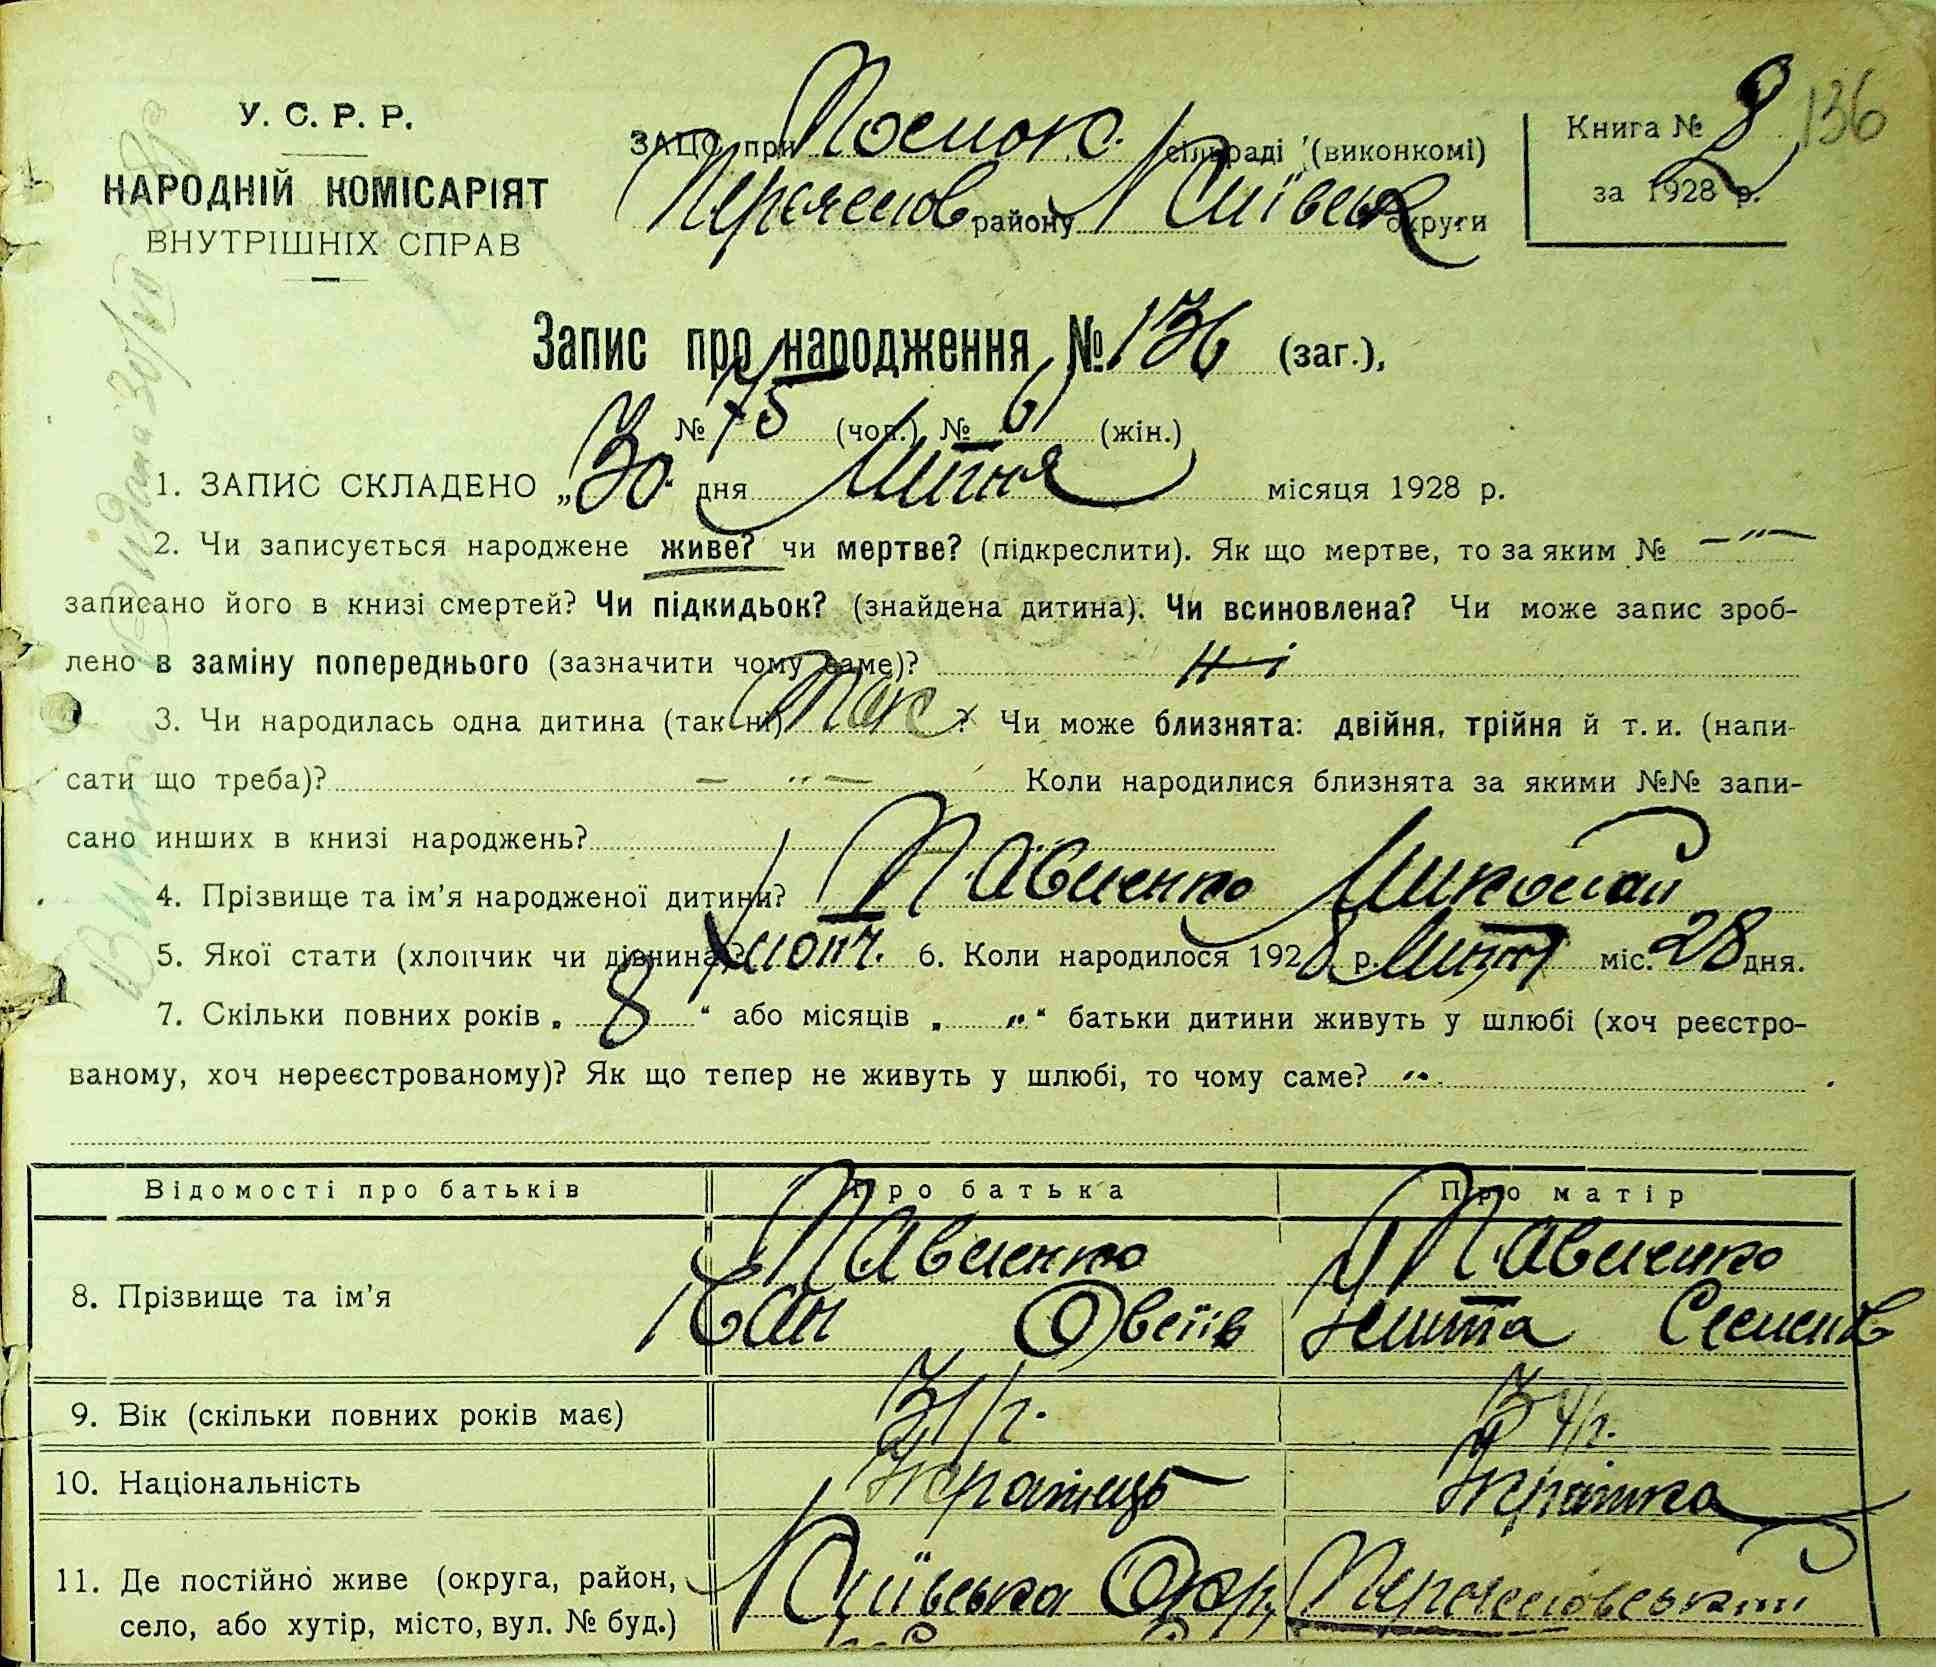 У. С. Р. Р.
НАРОДНІЙ КОМІСАРІЯТ
ВНУТРІШНІХ СПРАВ
ЗАЦС при сільраді (виконкомі)
району Київськ округи
Книга № 8
за 1928 р.
136
Запис про народження № 136 (заг.),
№ 75 (чол.) № 61 (жін.)
1. ЗАПИС СКЛАДЕНО „30" дня Липня місяця 1928 р.
2. Чи записується народжене живе? чи мертве? (підкреслити). Як що мертве, то за яким № — " —
записано його в книзі смертей? Чи підкидьок? (знайдена дитина). Чи всиновлена? Чи може запис зроб-
лено в заміну попереднього (зазначити чому саме)? Ні
3. Чи народилась одна дитина (так ні) Так ? Чи може близнята: двійня, трійня й т. и. (напи-
сати що треба)? — " — Коли народилися близнята за якими №№ запи-
сано инших в книзі народжень?
4. Прізвище та ім'я народженої дитини? Павленко Миколай
5. Якої стати (хлопчик чи дівчина)? хлопч. 6. Коли народилося 1928 р. Липня міс. 28 дня.
7. Скільки повних років „ 8 " або місяців „ " " батьки дитини живуть у шлюбі (хоч реєстро-
ваному, хоч нереєстрованому)? Як що тепер не живуть у шлюбі, то чому саме? "
Відомості про батьків Про батька Про матір
8. Прізвище та ім'я Павленко Павленко
9. Вік (скільки повних років має) 31 р. 34 р.
10. Національність Українець Українка
11. Де постійно живе (округа, район, Київська Окр,
село, або хутір, місто, вул. № буд.)